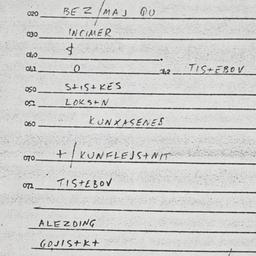 020 BEZ/MAJ QU
030 INCIMER
040 $
041 0 42 TIS+EBOV
050 S+IS+KES
052 LOKS+N
060 KUNXASENES
070 +/KUNFLEJS+NIT
072 TIS+EBOV
ALEZDING
GOJIS+K+